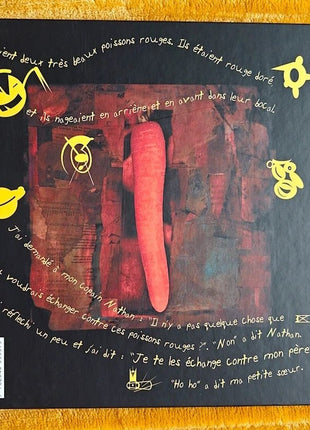 deux très beaux poissons rouges. Ils étaient rouge doré
et ils nageaient en arrière et en avant dans leur bocal
J'ai demandé à mon copain Nathan: "Il n'y a pas quelque chose que
voudrais échanger contre ces poissons rouges ?. "Non" a dit Nathan.
réfléchi un peu et j'ai dit: "Je te les échange contre mon père
"Ho ho" a dit ma petite sœur.